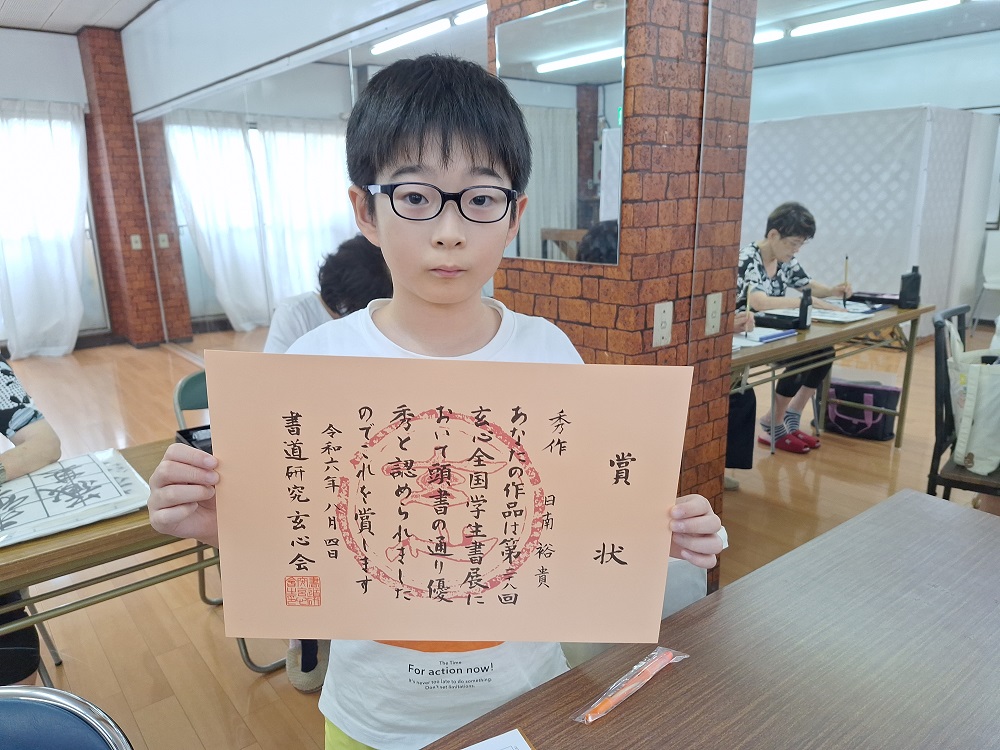 賞状
秀作
日南 裕貴
あなたの作品は第二八回
玄心全国学生書展に
おいて頭書の通り優
秀と認められました
のでこれを賞します
令和六年八月四日
書道研究 玄心会
The Time
For action now!
It's never too late to do something.
Don't set limitations.